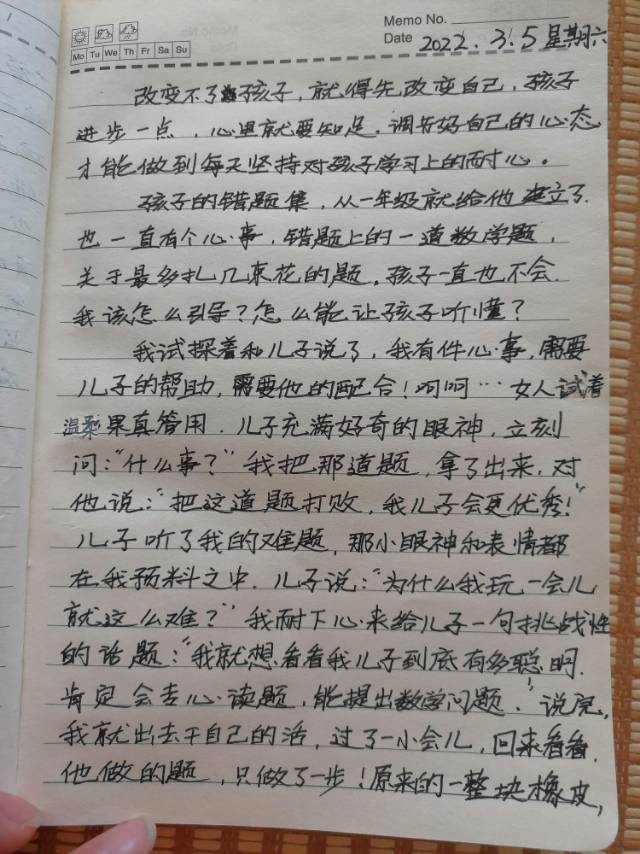 Memo No.
Mo Tu We Th Fr Sa Su
Date 2022.3.5 星期六
改变不了孩子，就得先改变自己，孩子
进步一点，心里就要知足，调节好自己的心态
才能做到每天坚持对孩子学习上的耐心。
孩子的错题集，从一年级就给他建立了.
也一直有个心事，错题上的一道数学题，
关于最多扎几束花的题。孩子一直也不会.
我该怎么引导？怎么能让孩子听懂？
我试探着和儿子说了，我有件心事，需要
儿子的帮助，需要他的配合！呵呵…女人试着
温柔果真管用.儿子充满好奇的眼神，立刻
问：“什么事？”我把那道题，拿了出来.对
他说：“把这道题打败，我儿子会更优秀！”
儿子听了我的难题，那小眼神和表情都
在我预料之中.儿子说：“为什么我玩一会儿
就这么难？”我耐下心来给儿子一句挑战性
的话题：“我就想看看我儿子到底有多聪明.
肯定会专心读题，能提出数学问题.”说完，
我就出去干自己的活，过了一小会儿，回来看看.
他做的题，只做了一步！原来的一整块橡皮，